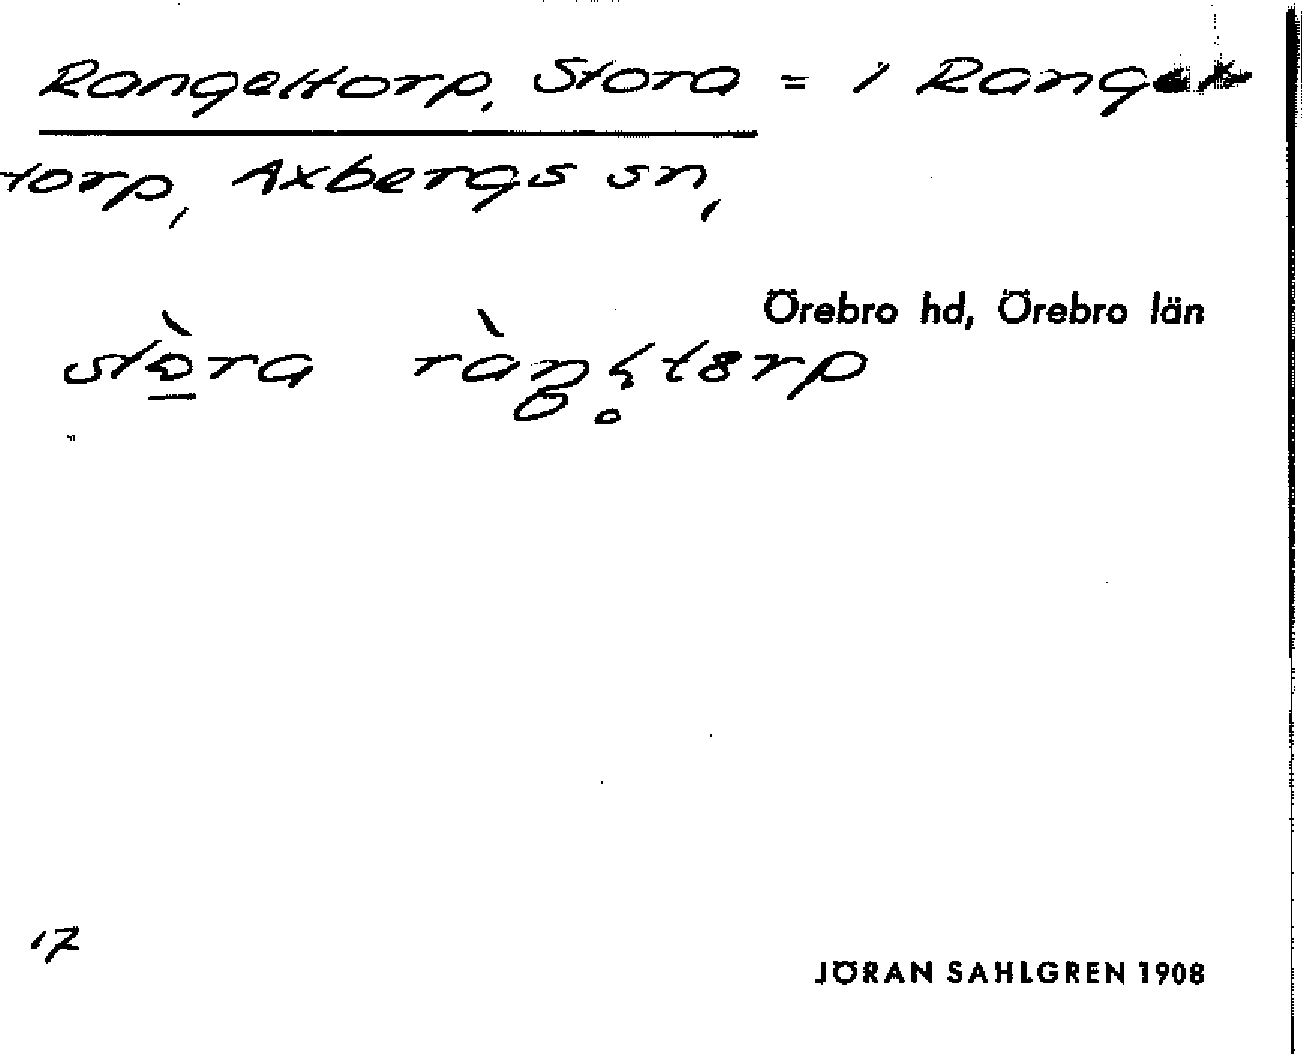 Rangeltorp, Stora = 1 Rangel-
torp, Axbergs sn,
Örebro hd, Örebro län
stora
17
JÖRAN SAHLGREN 1908